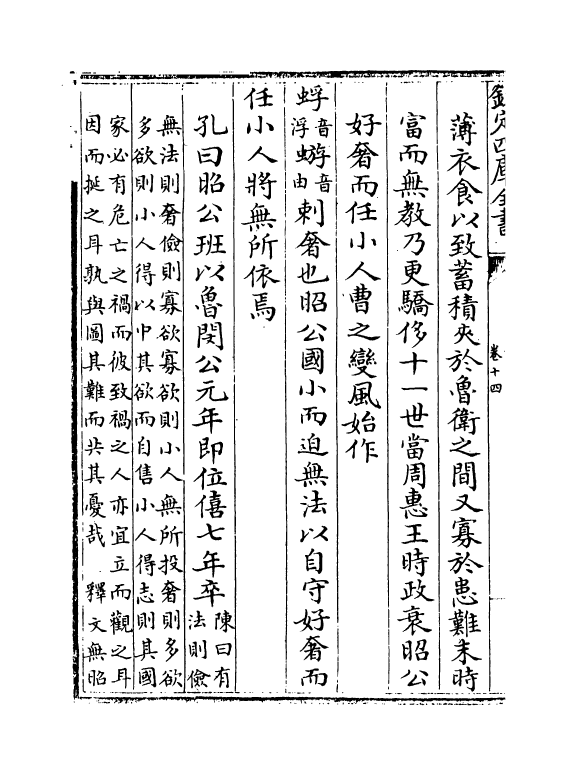 欽定四庫全書
卷十四
薄衣食以致蓄積夾於魯衛之間又寡於患難末時
富而無教乃更驕侈十一世當周惠王時政衰昭公
好奢而任小人曹之變風始作
蜉音浮蝣音由刺奢也昭公國小而迫無法以自守好奢而
任小人將無所依焉
孔曰昭公班以魯閔公元年即位僖七年卒陳曰有法則儉
無法則奢儉則寡欲寡欲則小人無所投奢則多欲
多欲則小人得以中其欲而自售小人得志則其國
家必有危亡之禍而彼致禍之人亦宜立而觀之耳
因而挺之耳孰與圖其難而共其憂哉 釋文無昭